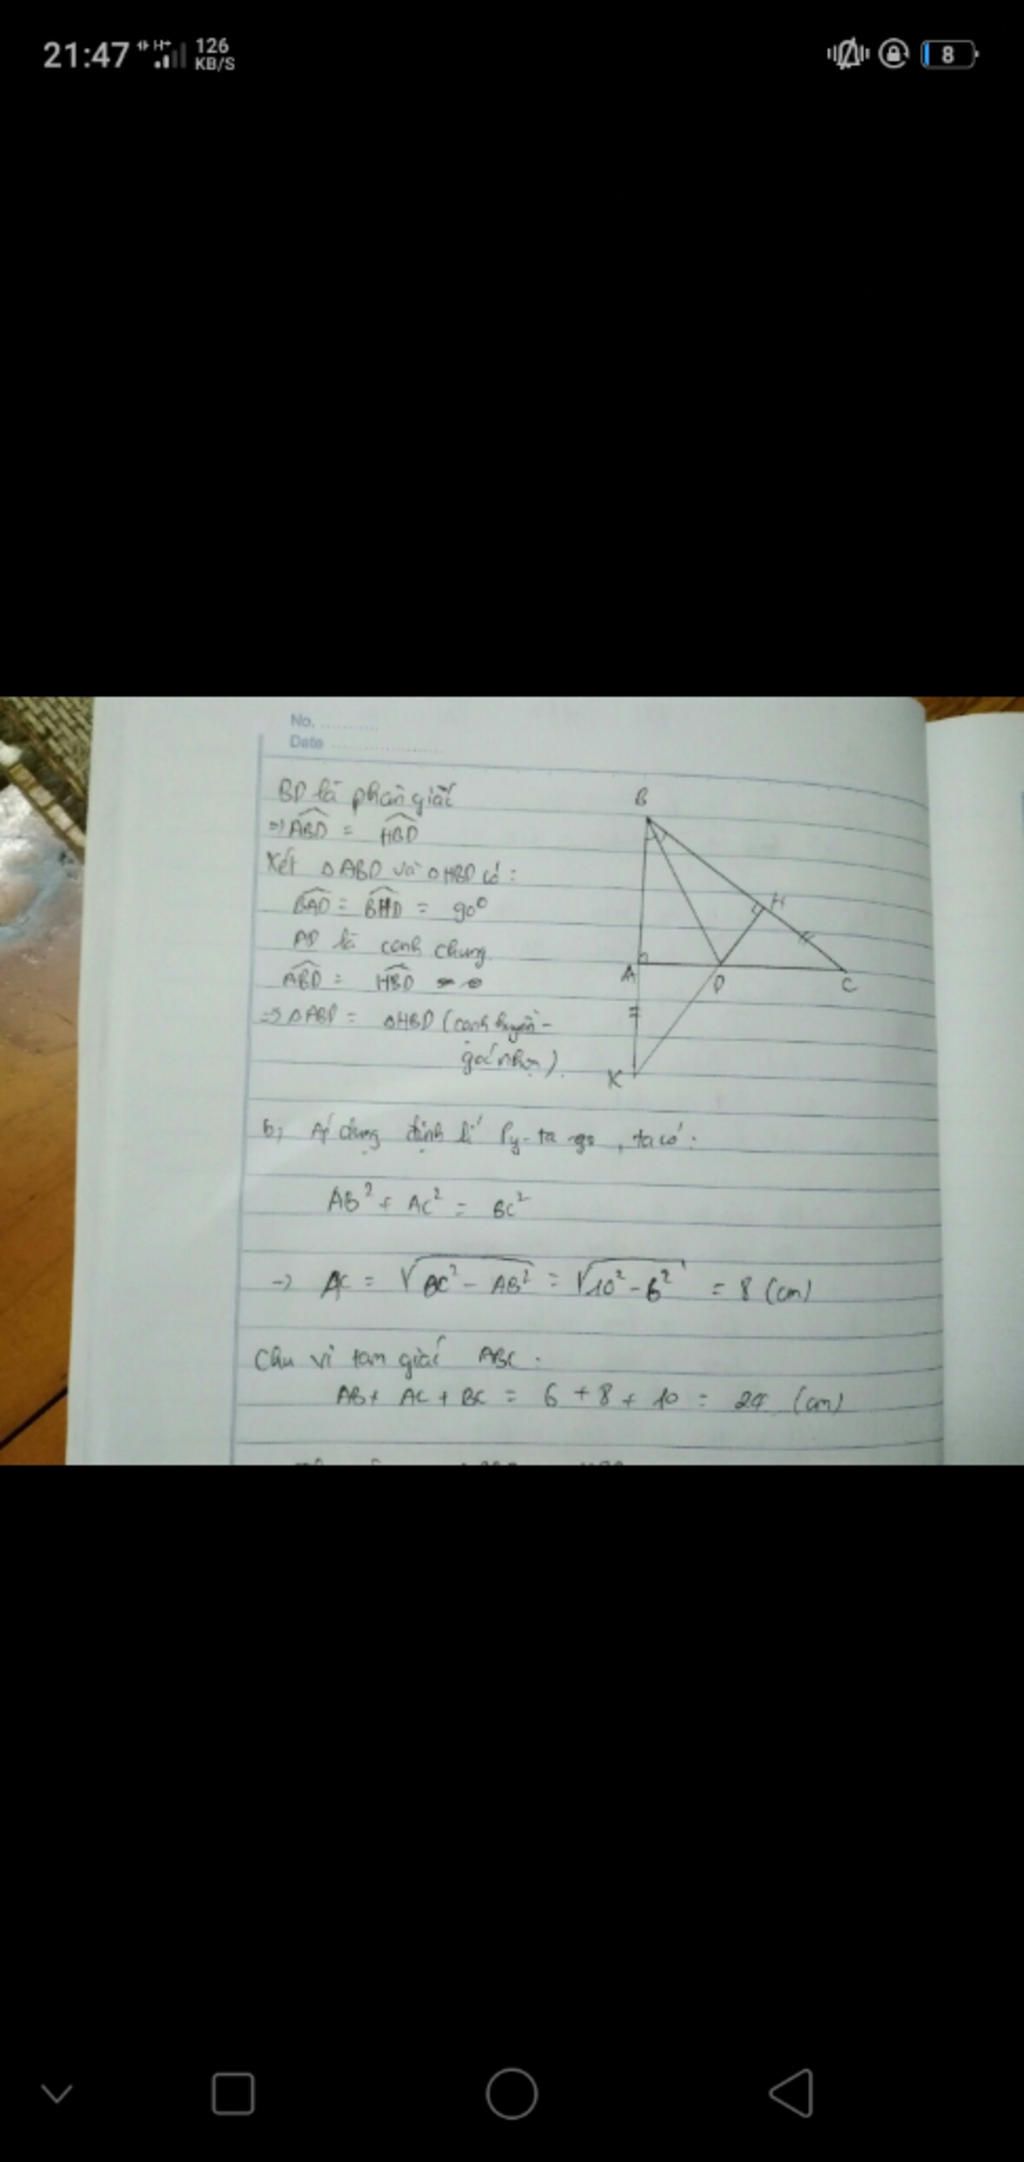 21:47
126
KB/S
8
No. ..........
Date ..................
BD là phân giác
=> ABD = HBD
Xét △ABD và △HBD có:
BAD = BHD = 90°
AD là cạnh chung
ABD = HBD
=> △ABD = △HBD (cạnh huyền -
góc nhọn).
B
H
A
D
C
K
b, Áp dụng định lí Py-ta-go, ta có:
AB² + AC² = BC²
-> AC = √BC² - AB² = √10² - 6² = 8 (cm)
Chu vi tam giác ABC.
AB + AC + BC = 6 + 8 + 10 = 24 (cm)